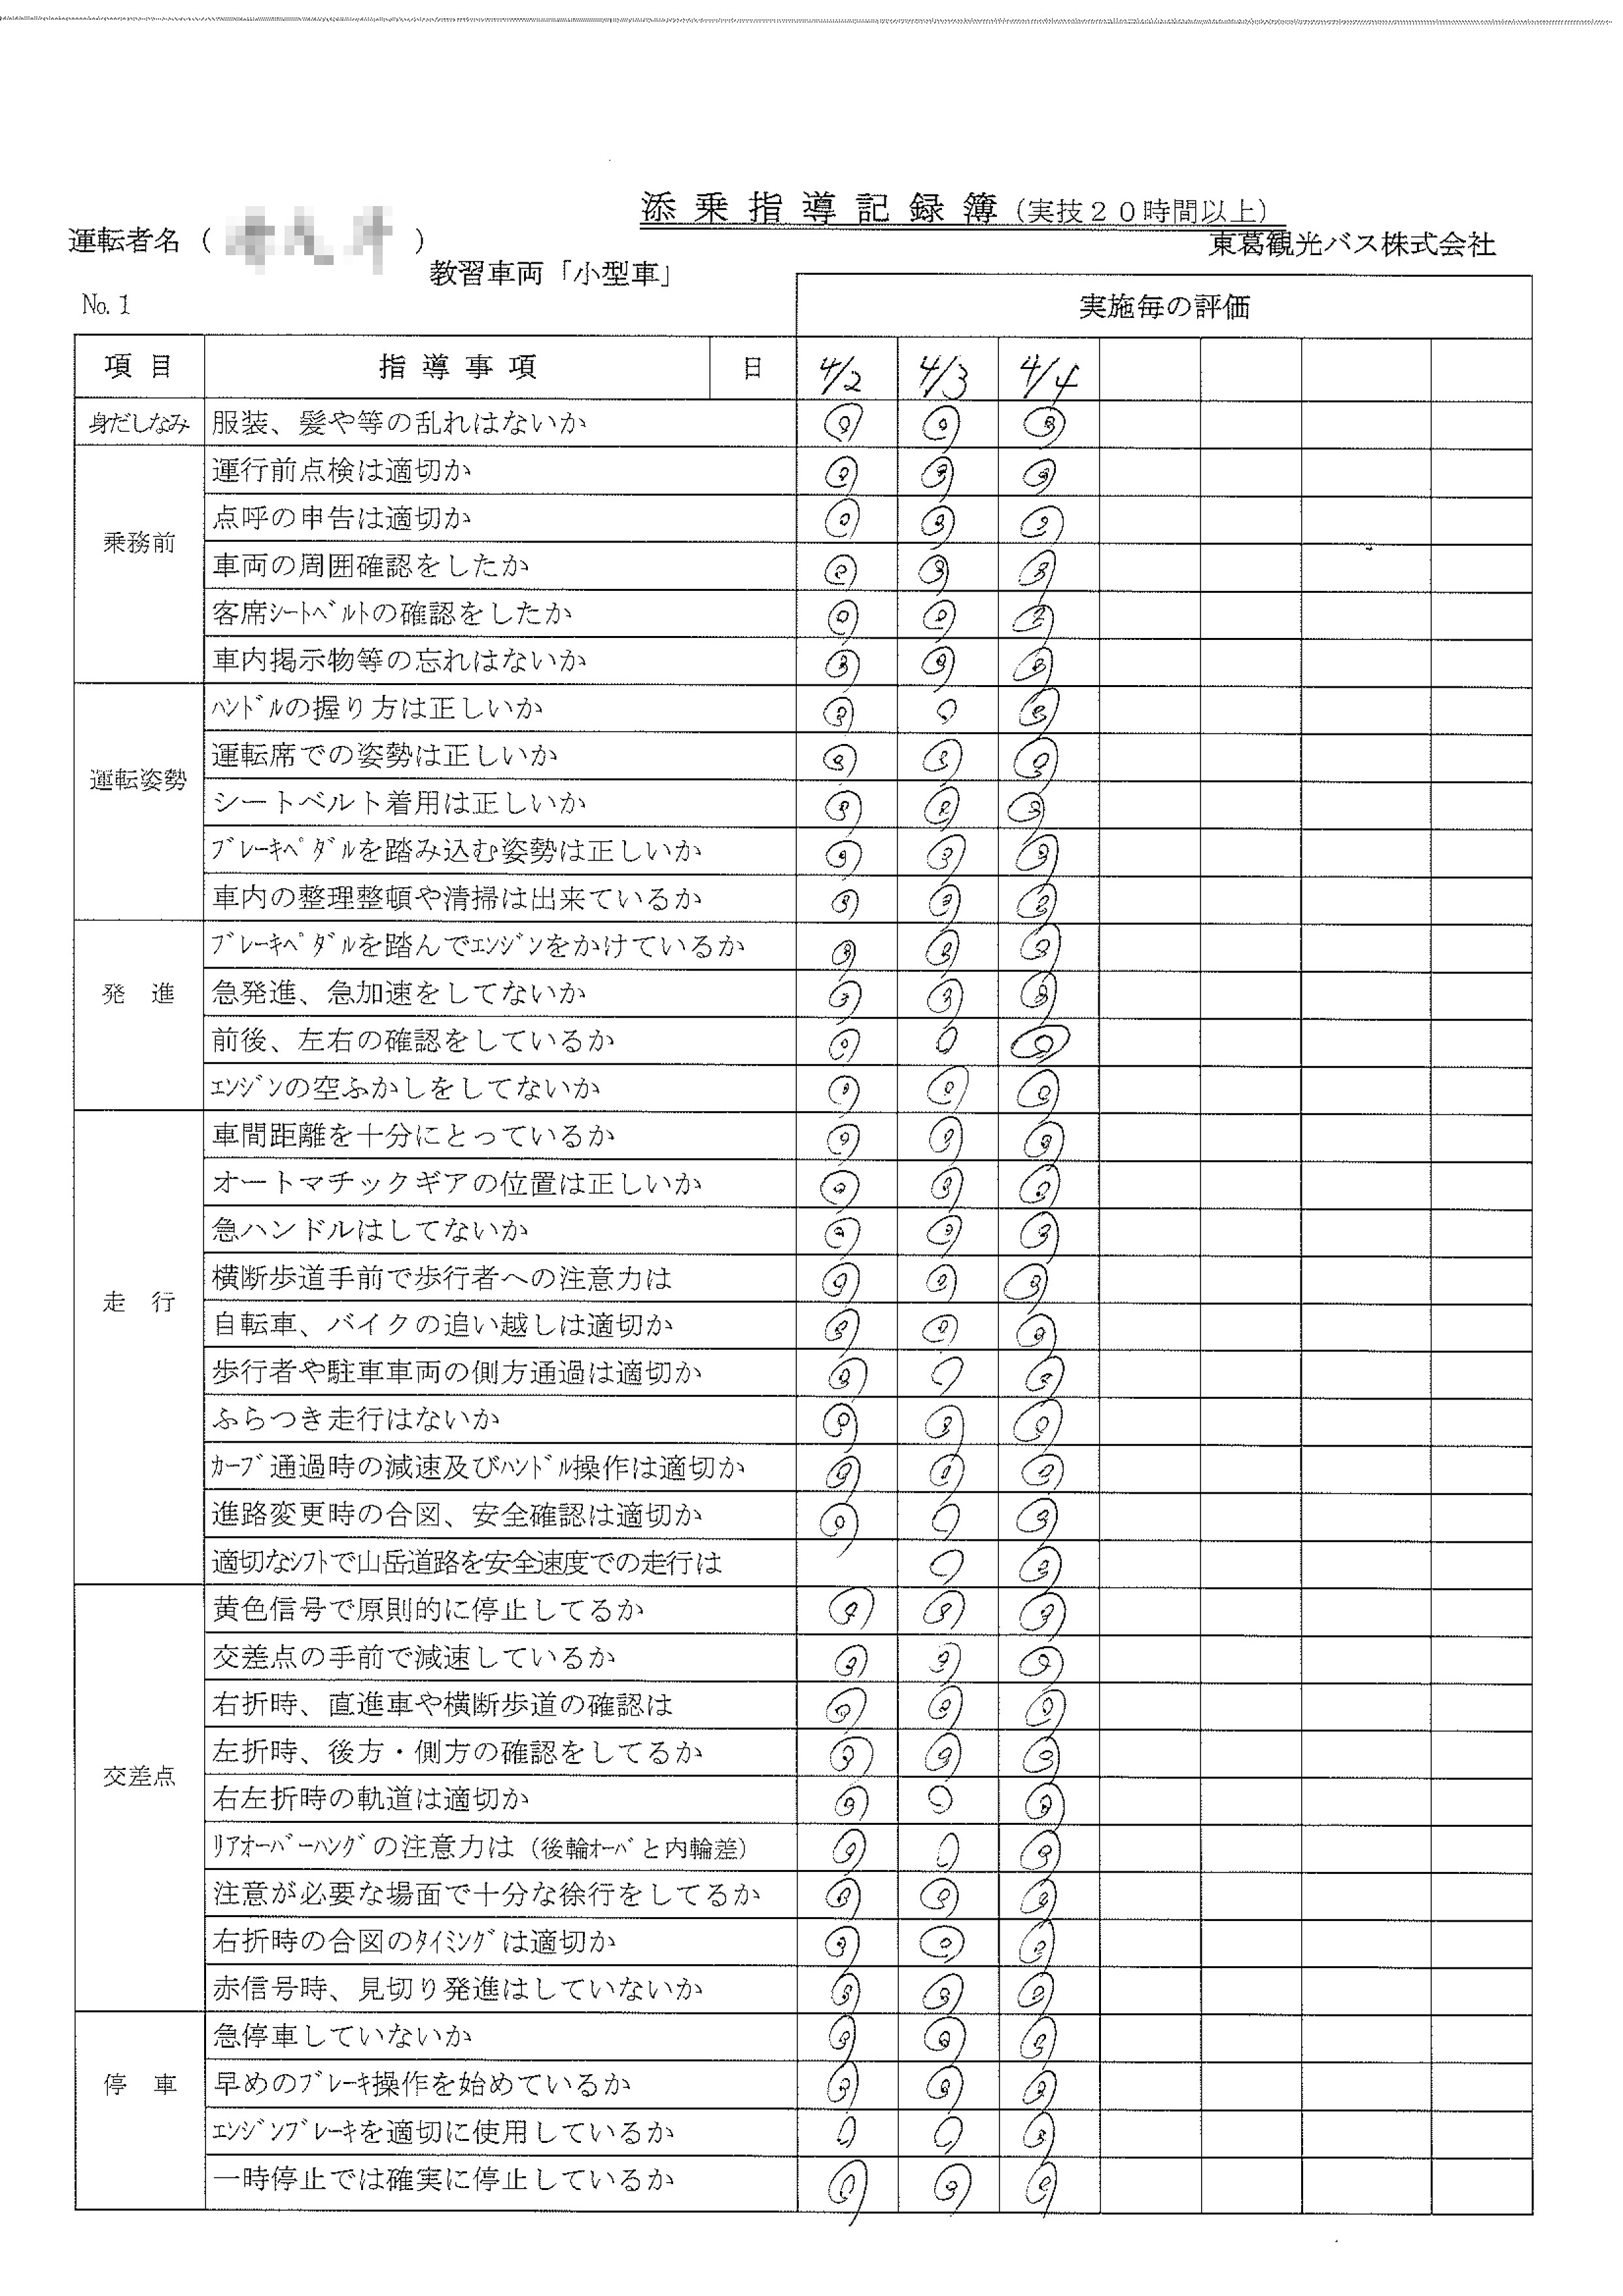 添乗指導記録簿（実技２０時間以上）
運転者名（　　　）
東葛観光バス株式会社
教習車両「小型車」
No. 1
実施毎の評価
項目 指導事項 日 4/2 4/3 4/4
身だしなみ 服装、髪や等の乱れはないか ◎ ◎ ◎
乗務前
運行前点検は適切か ◎ ◎ ◎
点呼の申告は適切か ◎ ◎ ◎
車両の周囲確認をしたか ◎ ◎ ◎
客席ｼｰﾄﾍﾞﾙﾄの確認をしたか ◎ ◎ ◎
車内掲示物等の忘れはないか ◎ ◎ ◎
運転姿勢
ﾊﾝﾄﾞﾙの握り方は正しいか ◎ ○ ◎
運転席での姿勢は正しいか ◎ ◎ ◎
シートベルト着用は正しいか ◎ ◎ ◎
ﾌﾞﾚｰｷﾍﾟﾀﾞﾙを踏み込む姿勢は正しいか ◎ ◎ ◎
車内の整理整頓や清掃は出来ているか ◎ ◎ ◎
発進
ﾌﾞﾚｰｷﾍﾟﾀﾞﾙを踏んでｴﾝｼﾞﾝをかけているか ◎ ◎ ◎
急発進、急加速をしてないか ◎ ◎ ◎
前後、左右の確認をしているか ◎ ○ ◎
ｴﾝｼﾞﾝの空ふかしをしてないか ◎ ◎ ◎
走行
車間距離を十分にとっているか ◎ ◎ ◎
オートマチックギアの位置は正しいか ◎ ◎ ◎
急ハンドルはしてないか ◎ ◎ ◎
横断歩道手前で歩行者への注意力は ◎ ◎ ◎
自転車、バイクの追い越しは適切か ◎ ◎ ◎
歩行者や駐車車両の側方通過は適切か ◎ ○ ◎
ふらつき走行はないか ◎ ◎ ◎
ｶｰﾌﾞ通過時の減速及びﾊﾝﾄﾞﾙ操作は適切か ◎ ◎ ◎
進路変更時の合図、安全確認は適切か ◎ ○ ◎
適切なｼﾌﾄで山岳道路を安全速度での走行は ○ ◎
交差点
黄色信号で原則的に停止してるか ◎ ◎ ◎
交差点の手前で減速しているか ◎ ◎ ◎
右折時、直進車や横断歩道の確認は ◎ ◎ ◎
左折時、後方・側方の確認をしてるか ◎ ◎ ◎
右左折時の軌道は適切か ◎ ○ ◎
ﾘｱｵｰﾊﾞｰﾊﾝｸﾞの注意力は（後輪ｵｰﾊﾞと内輪差） ◎ ○ ◎
注意が必要な場面で十分な徐行をしてるか ◎ ◎ ◎
右折時の合図のﾀｲﾐﾝｸﾞは適切か ◎ ◎ ◎
赤信号時、見切り発進はしていないか ◎ ◎ ◎
停車
急停車していないか ◎ ◎ ◎
早めのﾌﾞﾚｰｷ操作を始めているか ◎ ◎ ◎
ｴﾝｼﾞﾝﾌﾞﾚｰｷを適切に使用しているか ○ ○ ◎
一時停止では確実に停止しているか ◎ ◎ ◎